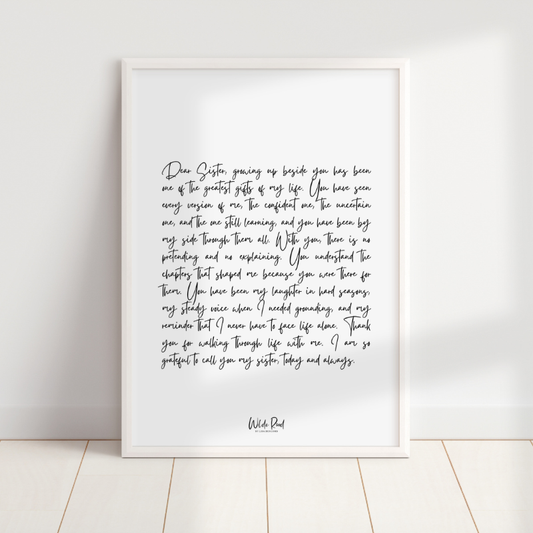 Dear Sister, growing up beside you has been
one of the greatest gifts of my life. You have seen
every version of me, the confident one, the uncertain
one, and the one still learning, and you have been by
my side through them all. With you, there is no
pretending and no explaining. You understand the
chapters that shaped me because you were there for
them. You have been my laughter in hard seasons,
my steady voice when I needed grounding, and my
reminder that I never have to face life alone. Thank
you for walking through life with me. I am so
grateful to call you my sister, today and always.
Wilde Road